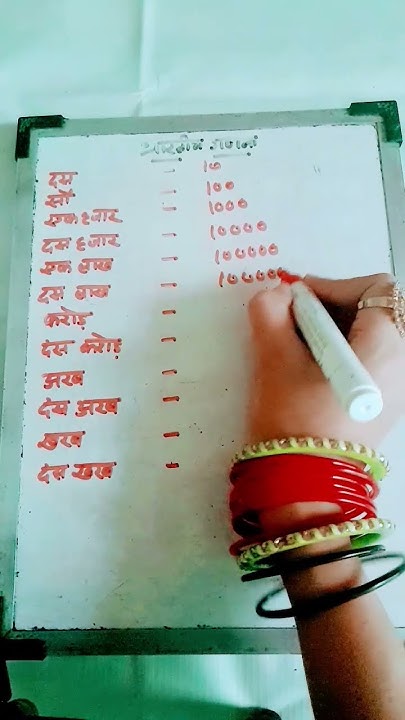 भारतीय गणना
दस - 10
सौ - 100
एक हजार - 1000
दस हजार - 10000
एक लाख - 100000
दस लाख - 100000
करोड़ -
दस करोड़ -
अरब -
दस अरब -
खरब -
दस खरब -